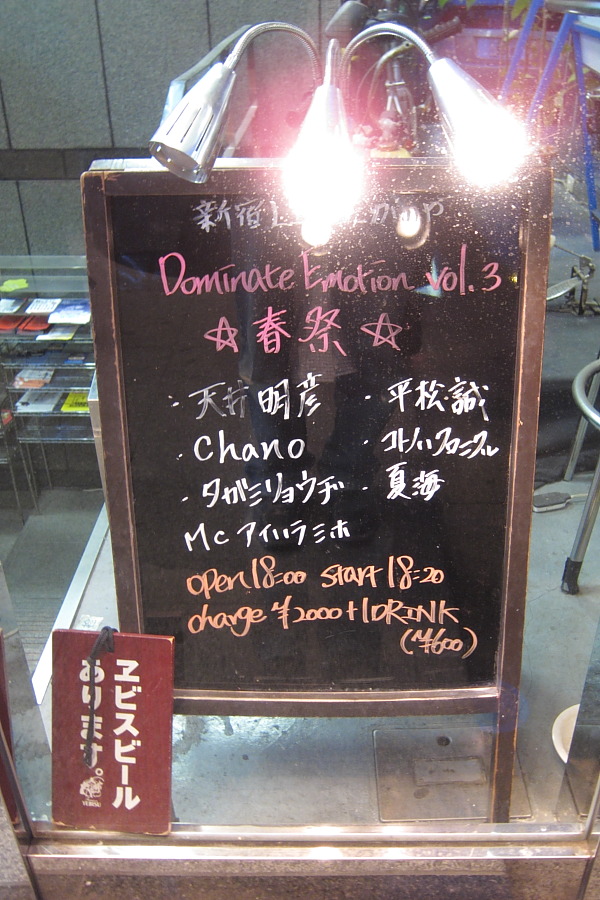 新宿
Dominate Emotion vol.3
☆春祭☆
・天井明彦 ・平松誠
・Chano ・コトノハクロニクル
・タガミリョウヂ ・夏海
MC アイハラミホ
open 18:00 start 18:20
charge ¥2000+1DRINK
(¥600)
ヱビスビール
あります。
YEBISU